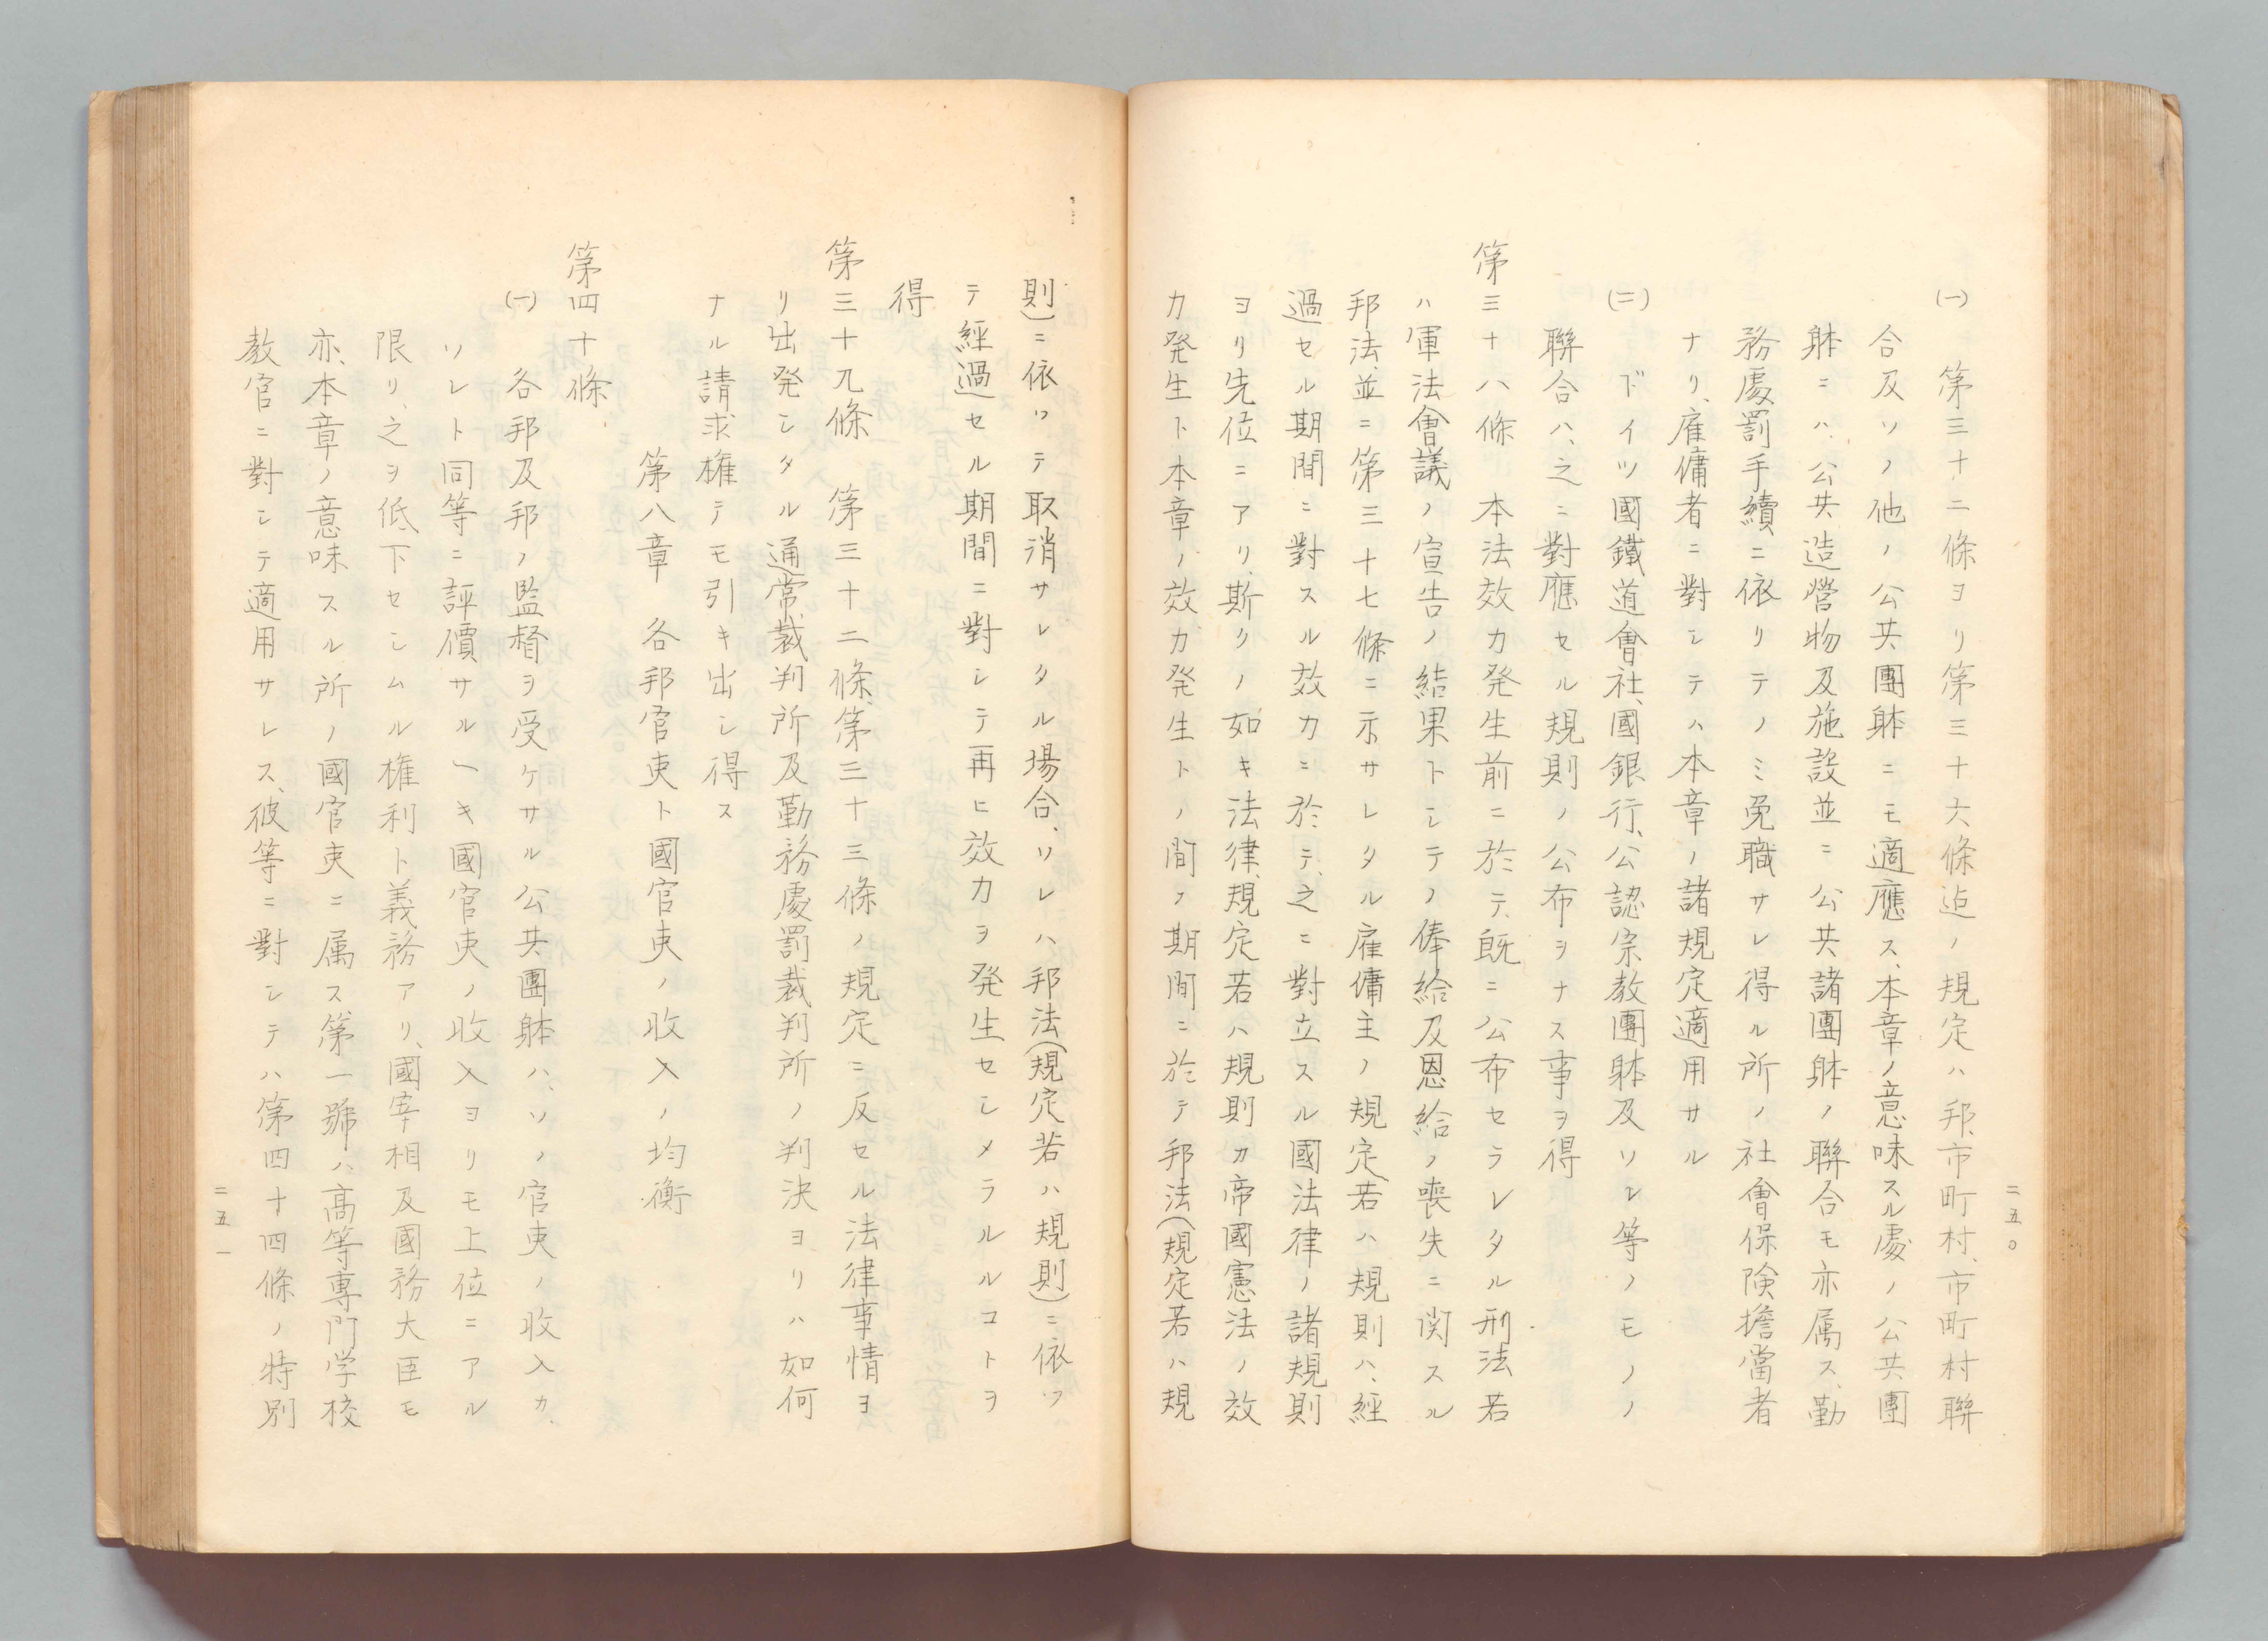 (一) 第三十二條ヨリ第三十六條迠ノ規定ハ邦、市町村、市町村聯
合及ソノ他ノ公共團躰ニモ適應ス、本章ノ意味スル處ノ公共團
躰ニハ、公共造營物及施設並ニ公共諸團躰ノ聯合モ亦属ス、勤
務處罰手續ニ依リテノミ免職サレ得ル所ノ社會保険擔當者
ナリ、雇傭者ニ對シテハ本章ノ諸規定適用サル
(二) ドイツ國鐵道會社、國銀行、公認宗教團躰及ソレ等ノモノノ
聯合ハ、之ニ對應セル規則ノ公布ヲナス事ヲ得
第三十八條 本法效力発生前ニ於テ、既ニ公布セラレタル刑法若
ハ軍法會議ノ宣告ノ結果トシテノ俸給及恩給ノ喪失ニ関スル
邦法、並ニ第三十七條ニ示サレタル雇傭主ノ規定若ハ規則ハ、經
過セル期間ニ對スル效力ニ於テ、之ニ對立スル國法律ノ諸規則
ヨリ先位ニアリ、斯クノ如キ法律、規定若ハ規則カ帝國憲法ノ效
力発生ト本章ノ效力発生トノ間ノ期間ニ於テ邦法(規定若ハ規
二五〇
則)ニ依ツテ取消サレタル場合、ソレハ邦法(規定若ハ規則)ニ依ツ
テ經過セル期間ニ對シテ再ヒ效力ヲ発生セシメラルルコトヲ
得
第三十九條 第三十二條、第三十三條ノ規定ニ反セル法律事情ヨ
リ出発シタル通常裁判所及勤務處罰裁判所ノ判決ヨリハ如何
ナル請求権テモ引キ出シ得ス
第八章 各邦官吏ト國官吏ノ收入ノ均衡
第四十條、
(一) 各邦及邦ノ監督ヲ受ケサル公共團躰ハ、ソノ官吏ノ收入カ、
ソレト同等ニ評價サルヘキ國官吏ノ收入ヨリモ上位ニアル
限リ、之ヲ低下セシムル権利ト義務アリ、國宰相及國務大臣モ
亦、本章ノ意味スル所ノ國官吏ニ属ス第一號ハ、高等専門学校
教官ニ對シテ適用サレス、彼等ニ對シテハ第四十四條ノ特別
二五一